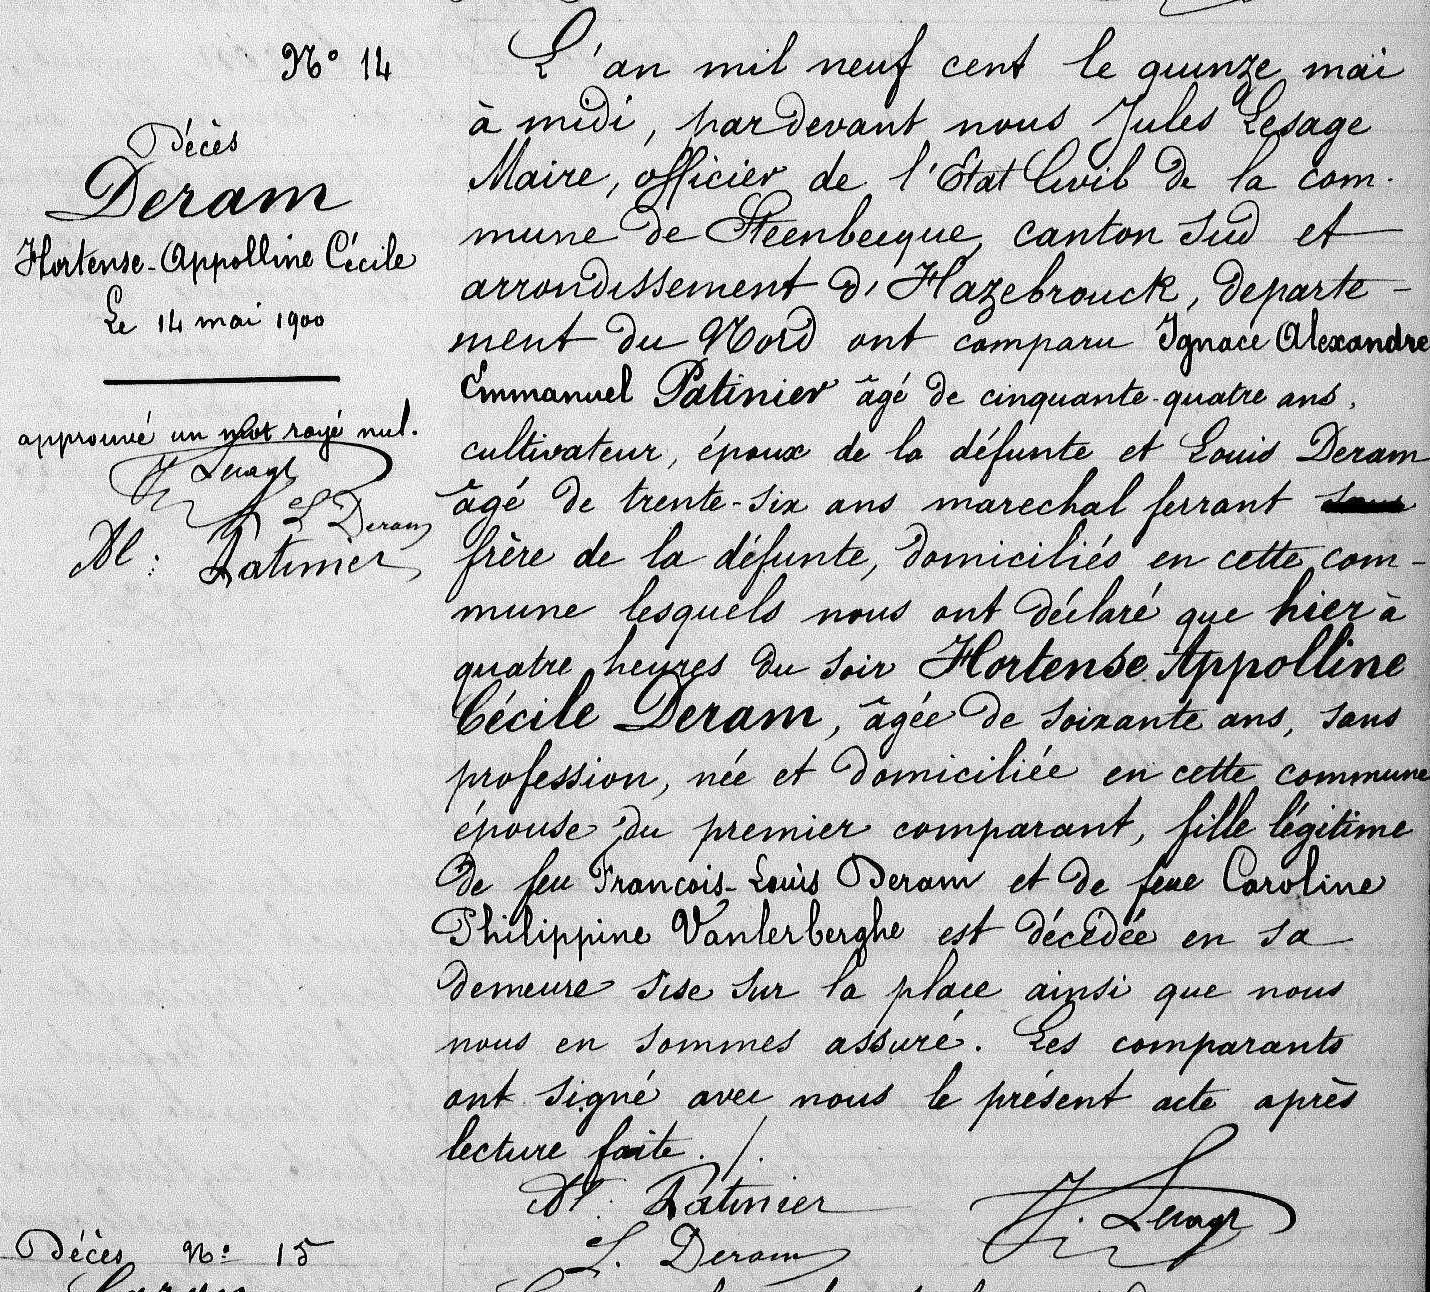 N° 14
Décès
Deram
Hortense-Appolline Cécile
Le 14 mai 1900
approuvé un mot rayé nul.
J Lesage
L Deram
Al: Patinier
L'an mil neuf cent le quinze mai
à midi, pardevant nous Jules Lesage
Maire, officier de l'Etat Civil de la com-
mune de Steenbecque, canton sud et
arrondissement d'Hazebrouck, departe-
ment du Nord ont comparu Ignace Alexandre
Emmanuel Patinier âgé de cinquante-quatre ans,
cultivateur, époux de la défunte et Louis Deram
âgé de trente-six ans marechal ferrant
frère de la défunte, domiciliés en cette com-
mune lesquels nous ont déclaré que hier à
quatre heures du soir Hortense Appolline
Cécile Deram, âgée de soixante ans, sans
profession, née et domiciliée en cette commune
épouse du premier comparant, fille légitime
de feu Francois-Louis Deram et de feue Caroline
Philippine Vanlerberghe est décédée en sa
demeure sise sur la place ainsi que nous
nous en sommes assuré. Les comparants
ont signé avec nous le présent acte après
lecture faite ./.
Al. Patinier
J. Lesage
L. Deram
Décès N° 15